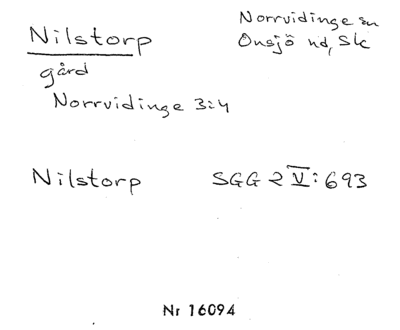 Nilstorp
Norrvidinge sn
Onsjö hd, Sk
gård
Norrvidinge 3:4
Nilstorp SGG 2 V:693
Nr 16094